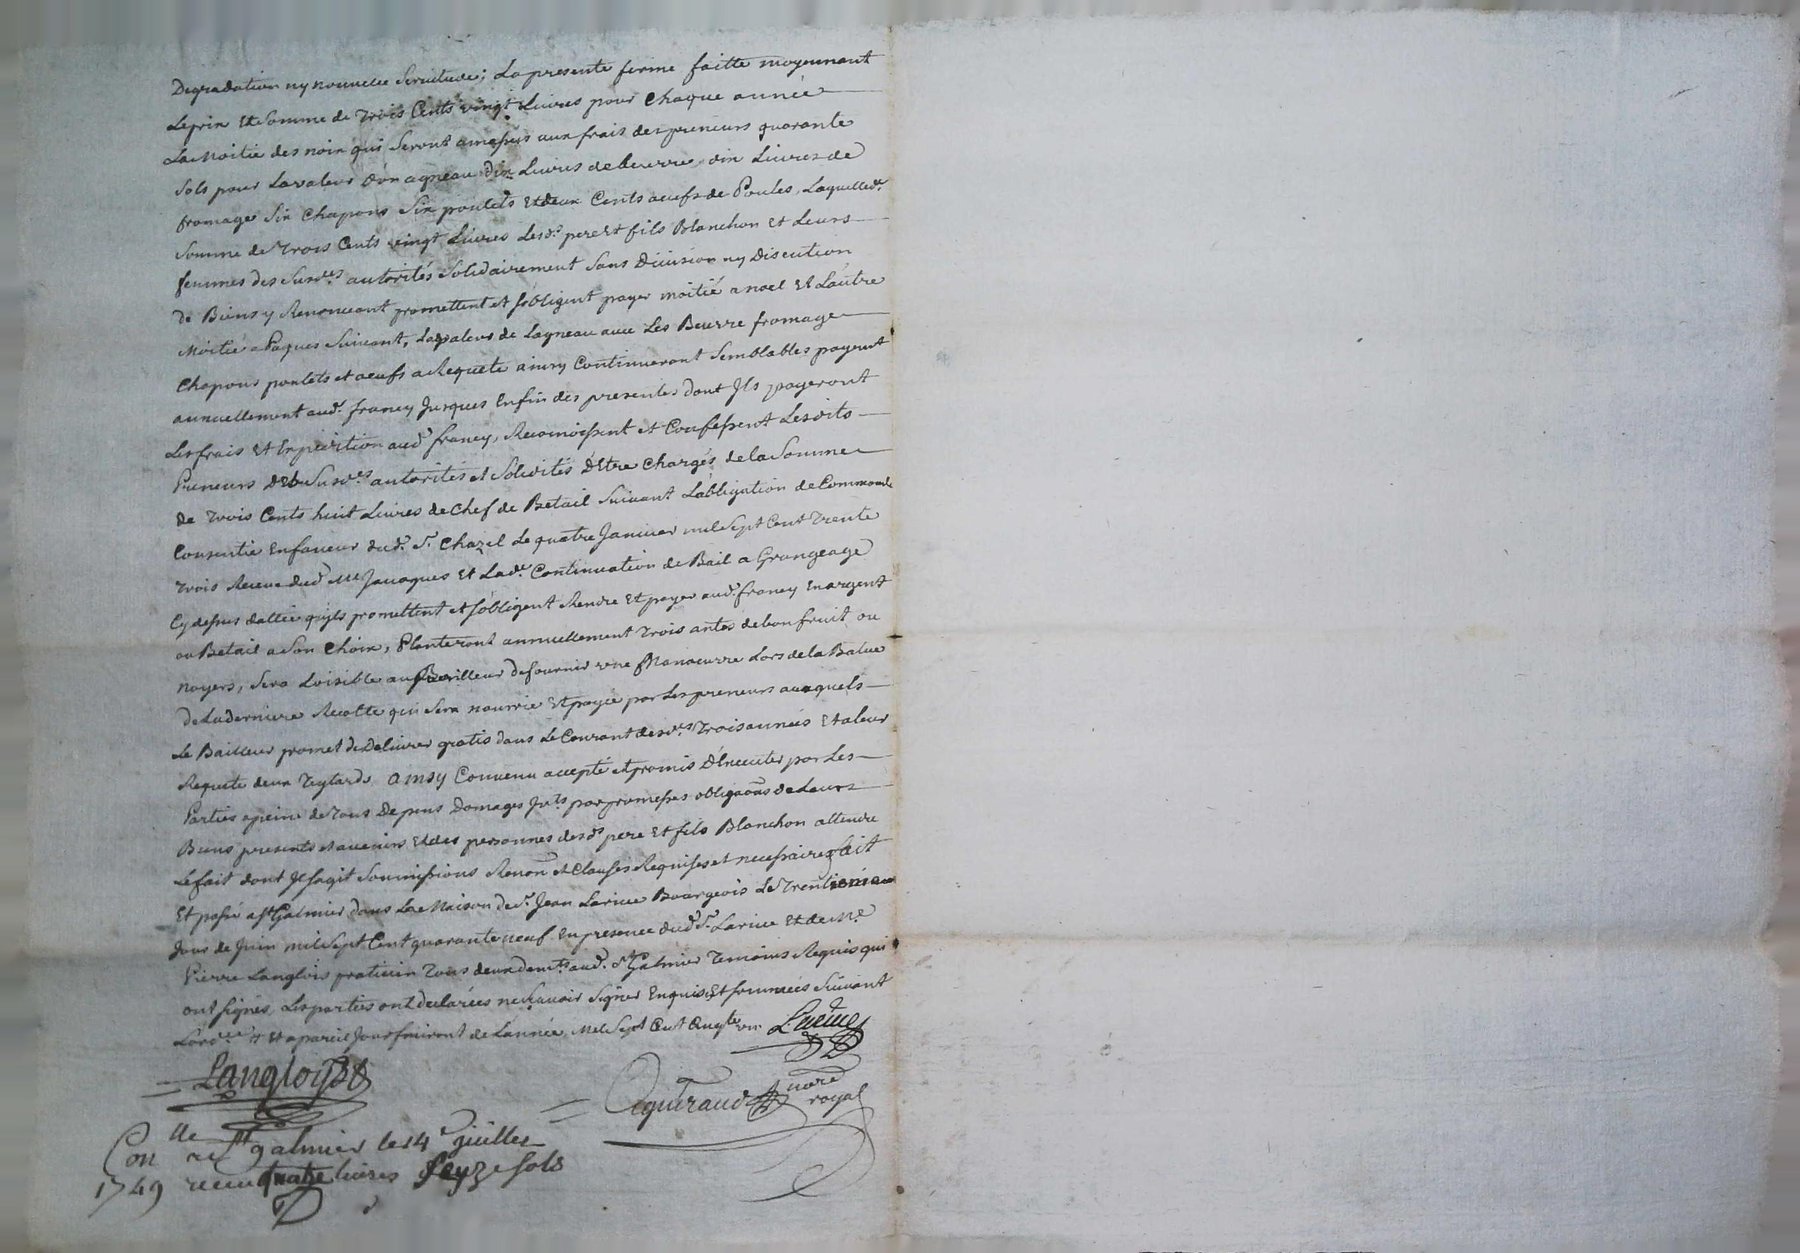 Degradation ny nouvelle Servitude ; La presente ferme faitte moyennant
Le prix Et Somme de Trois Cents vingt Livres pour Chaque année
La Moitié des noix qui Seront amassés aux frais des preneurs quarante
Sols pour La valeur d'un agneau dix Livres de beurre dix Livres de
fromage Six Chapons Six poulets Et deux Cents oeufs de Poules, Laquelle de
Somme de Trois Cents vingt Livres Lesd. pere Et fils Blanchon Et Leurs
femmes des Susd.es autorités Solidairement Sans Division ny Discution
de Biens y Renonceant promettent et s'obligent payer moitié a noel Et L'autre
Moitié a Paques Suivant, La valeur de Lagneau avec Les Beurre fromage
Chapons poulets et oeufs a Requete ainsy Continueront Semblables payemt
annuellement aud. francy Jusques Enfin des presentes dont Ils payeront
Les frais Et Expedition aud. francy, Reconoissent et Confessent Lesdits
Preneurs des Susd.es autorités et Solidités d'Etre Chargés de la Somme
de Trois Cents huit Livres de Chef de Betail Suivant L'obligation de Commande
Consentie En faveur dud. Sr. Chazel Le quatre Janvier mil Sept Cent Trente
Trois Receue dud. Me Jauaques Et Lad. Continuation de Bail a Grangeage
Cy dessus dattée quils promettent et s'obligent Rendre Et payer aud. francy En argent
ou Betail a Son Choix, Planteront annuellement Trois antes de bon fruit ou
noyers, Sera Loisible au Bailleur de fournir une Manoeuvre Lors de la Batue
de La derniere Recolte qui Sera nourrie Et payée par Les preneurs auxquels
Le Bailleur promet de Delivrer gratis dans Le Courant desd.es Trois années Et a leur
Requete deux Teylards ainsy Convenu accepté et promis d'Executer par Les
Parties a peine de Tous Depens Domages Jnts par promesses obligaons de Leurs
Biens presents et avenirs Et des personnes desd. pere Et fils Blanchon attendu
Le fait dont Il s'agit Soumissions Renon et Clauses Requises et necessaires fait
Et passé a St Galmier dans La Maison de Sr. Jean Larive Bourgeois Le Trentieme
Jour de Juin mil Sept Cent quarante neuf En presence dud. Sr. Larive Et de Me
Pierre Langlois praticien Tous deux demts aud. St Galmier Temoins Requis qui
ont signés, Les parties ont declarées ne Sçavoir Signer Enquises Et sommées Suivant
Lord.ce Et a pareil Jour finiront de L'année Mil Sept Cent Cinqte un Larive
Langloys
nore
royal
Con lé a St galmier le 14e juillet
1749 receu quatre livres Seyze sols